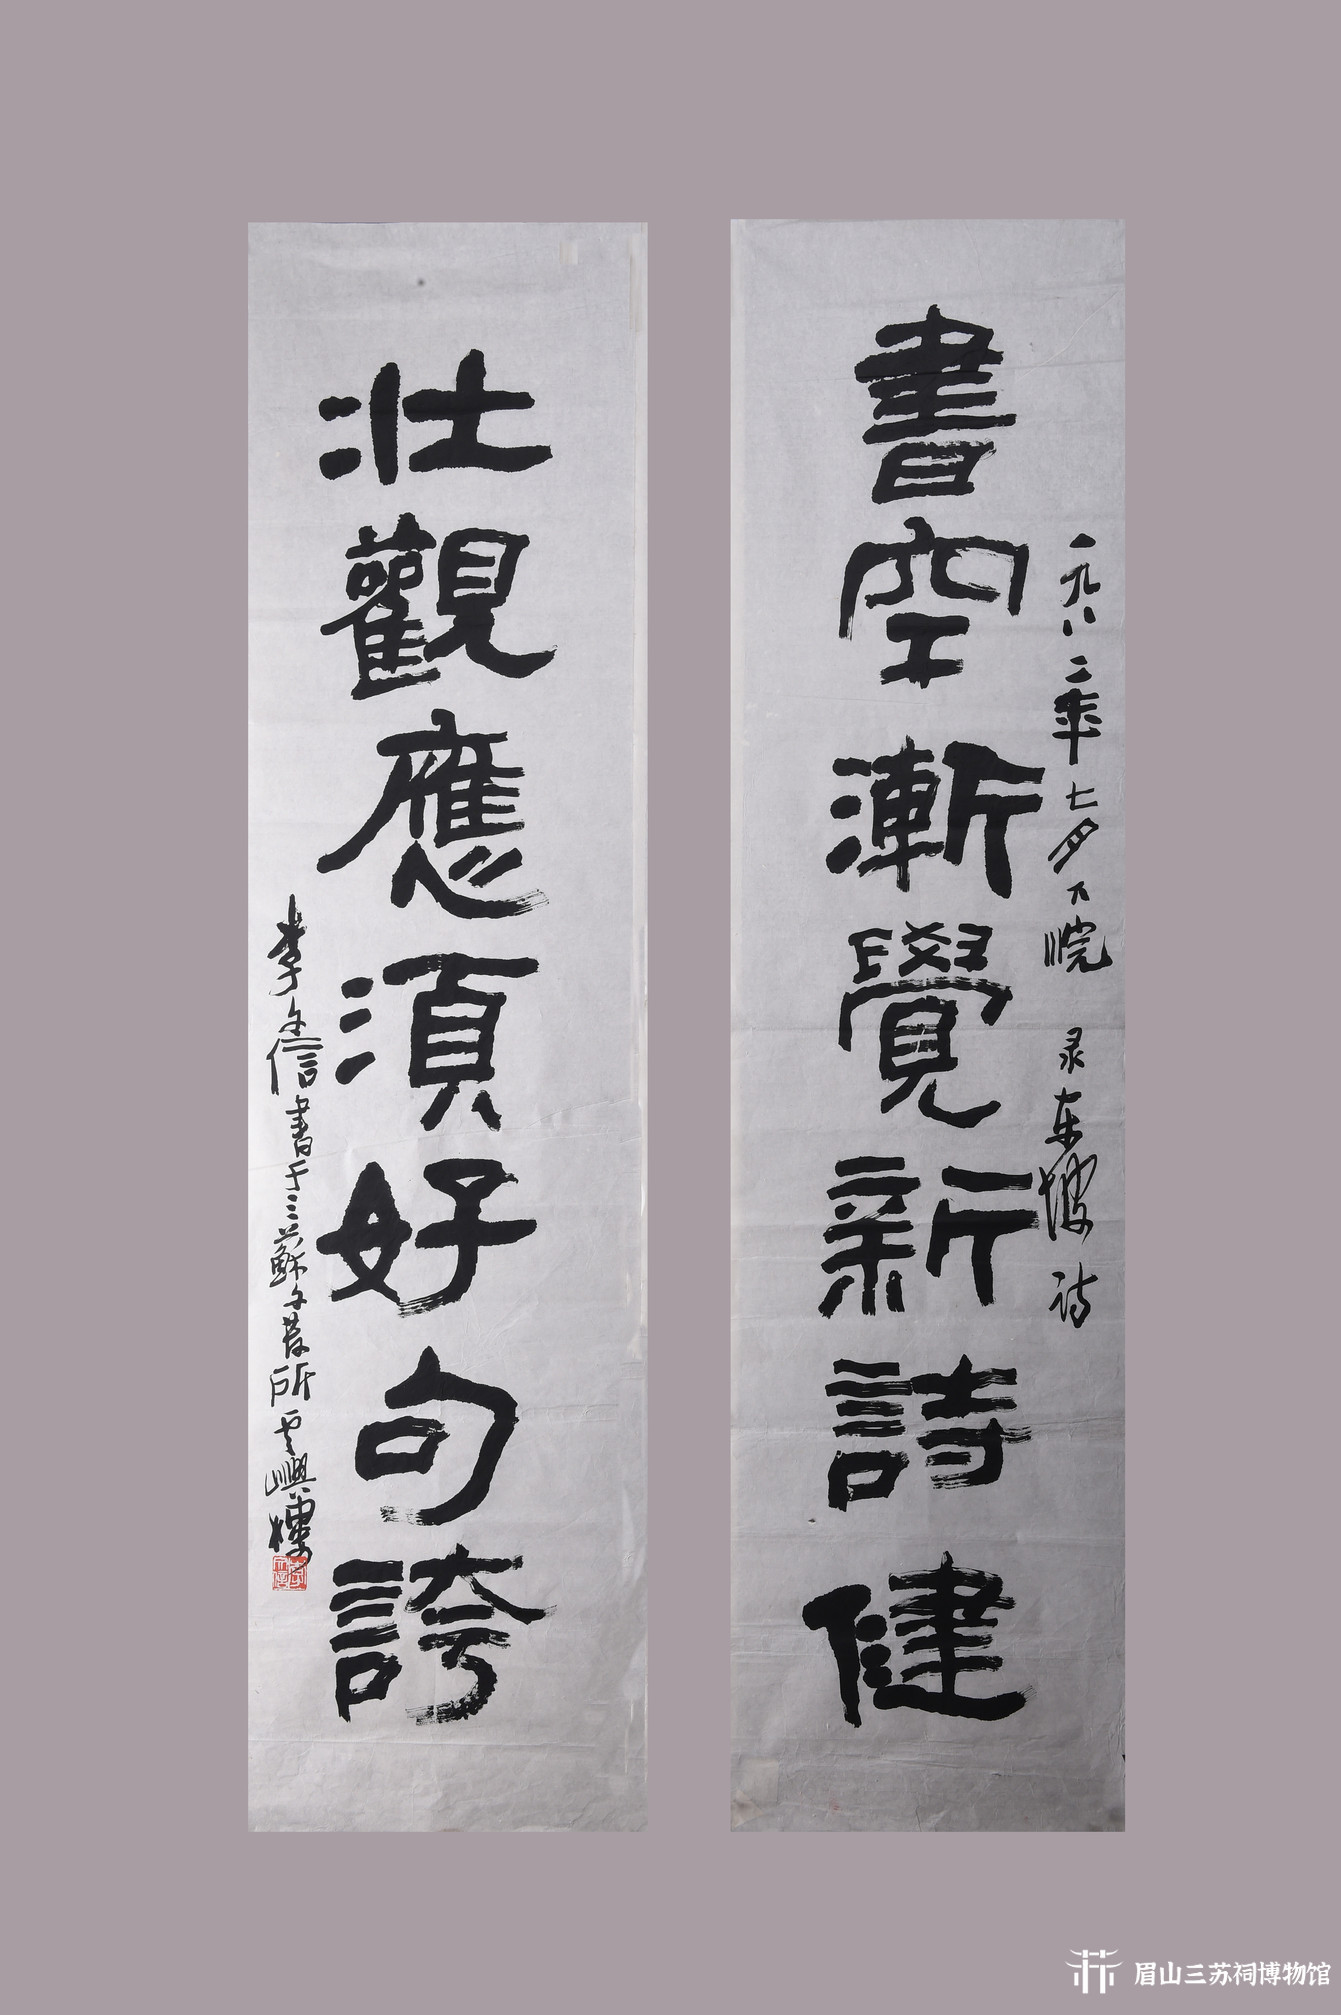 書空漸覺新詩健
一九八二年七夕下浣 录东坡诗
壯觀應須好句誇
李文信書于三蘇 所 樓
眉山三苏祠博物馆